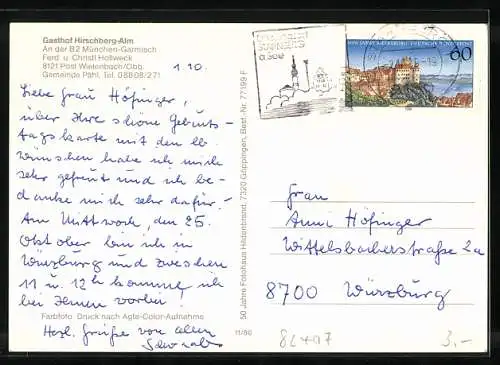 Gasthof Hirschberg-Alm
An der B2 München-Garmisch
Ferd. u. Christl Hollweck
8121 Post Wielenbach/Obb.
Gemeinde Pähl, Tel. 08808/271
1.10.
Liebe Frau Höfinger,
über Ihre schöne Geburts-
tagskarte mit den lb.
Wünschen habe ich mich
sehr gefreut und ich be-
danke mich sehr dafür.
Am Mittwoch, den 25.
Oktober bin ich in
Würzburg und zwischen
11 u. 12 h komme ich
bei Ihnen vorbei!
Farbfoto Druck nach Agfa-Color-Aufnahme
Herzl. Grüße von allen
50 Jahre Fotohaus Hildenbrand, 7320 Göppingen, Best.-Nr. 77199 F
11/80
60
Frau
Anni Höfinger
Wittelsbacherstraße 2a
8700 Würzburg
3.-